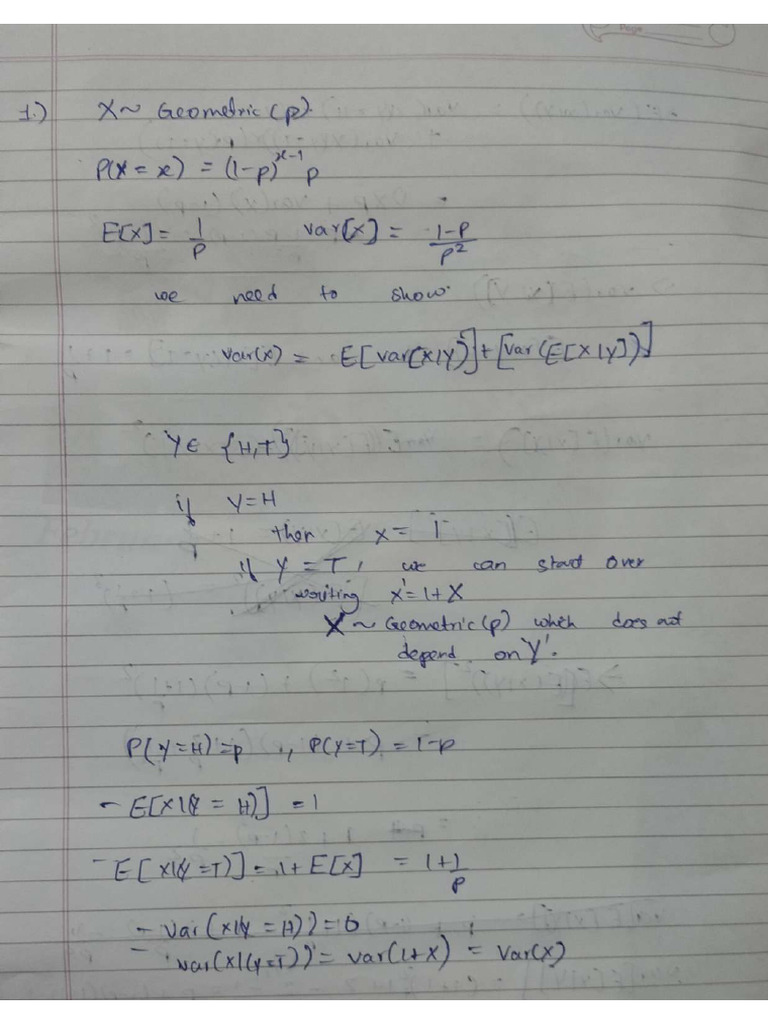 1.) X ~ Geometric (p).
P(X = x) = (1-p)^{x-1} p
E[X] = 1/p var[X] = 1-p/p²
we need to show.
var(x) = E[var(X|Y)] + [var(E[X|Y])]
Y ∈ {H,T}
if Y=H
then x = 1
if Y = T, we can start over
writing x' = 1+X
X ~ Geometric(p) which does not
depend on Y'.
P(Y=H) = p , P(Y=T) = 1-p
- E[X|(Y = H)] = 1
- E[X|(Y=T)] = 1+E[X] = 1+1/p
- var(X|(Y = H)) = 0
- var(X|(Y=T)) = var(1+X) = var(X)